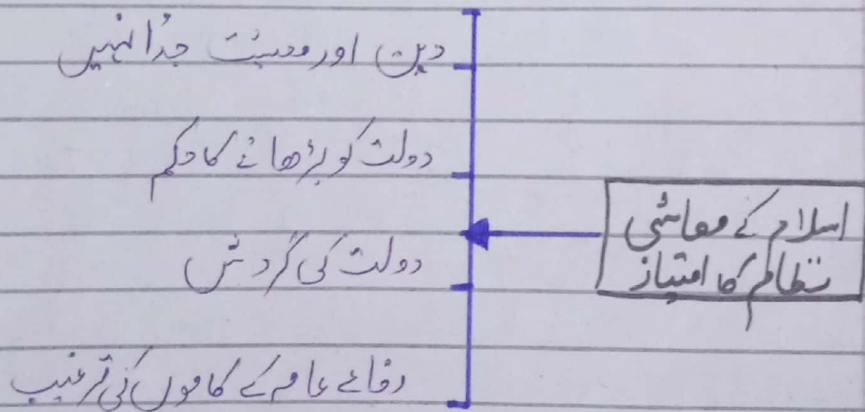 اسلام کے معاشی
نظام کا امتیاز
دین اور معیشت جدا نہیں
دولت کو بڑھانے کا حکم
دولت کی گردش
رفاعے عامہ کے کاموں کی ترغیب